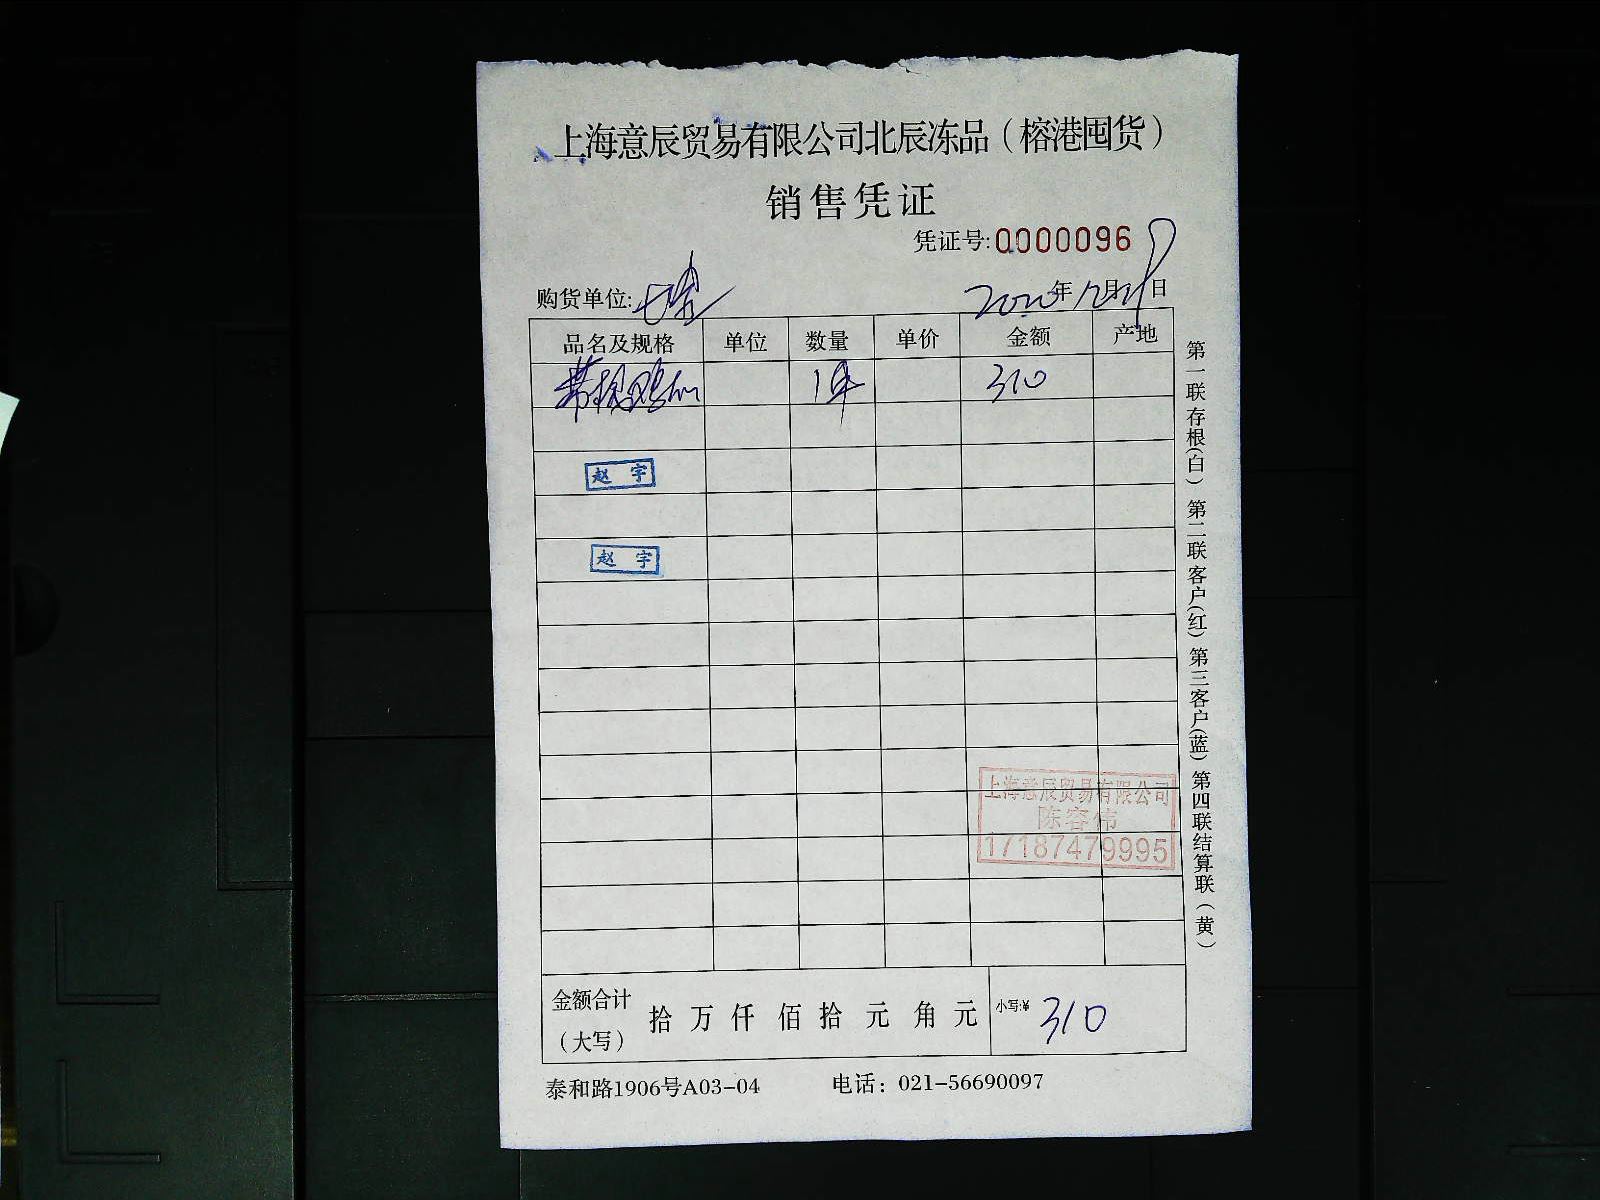 上海意辰贸易有限公司北辰冻品（榕港囤货）
销售凭证
凭证号:0000096
购货单位:
2020年12月29日
品名及规格 单位 数量 单价 金额 产地
1件 310
赵 宇
赵 宇
上海意辰贸易有限公司
陈容伟
17187479995
金额合计（大写） 拾 万 仟 佰 拾 元 角 元 小写:¥ 310
泰和路1906号A03-04 电话：021-56690097
第一联存根(白) 第二联客户(红) 第三客户(蓝) 第四联结算联（黄）